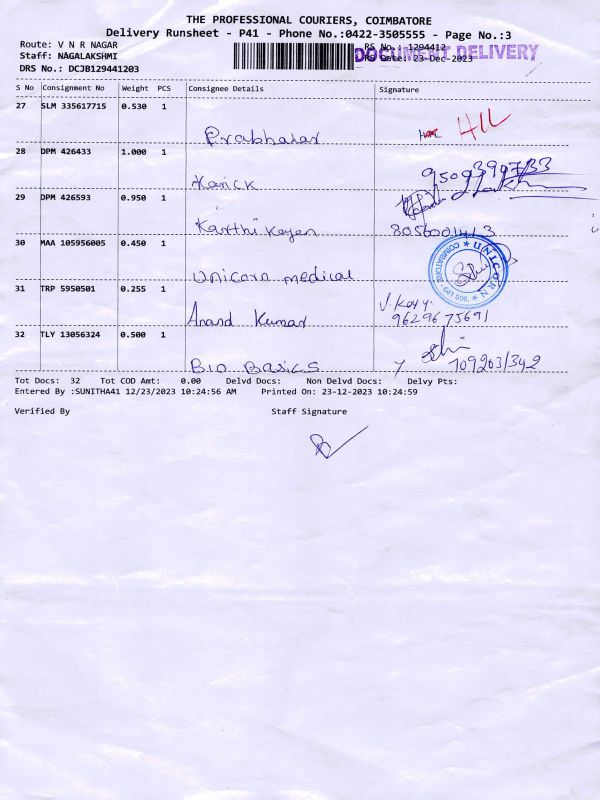 THE PROFESSIONAL COURIERS, COIMBATORE
Delivery Runsheet - P41 - Phone No.:0422-3505555 - Page No.:3
Route: V N R NAGAR
RS No. 1294412
DOCUMENT DELIVERY
Staff: NAGALAKSHMI
RS Date: 23-Dec-2023
DRS No.: DCJB129441203
S No Consignment No Weight PCS Consignee Details Signature
27 SLM 335617715 0.530 1
Prabhakar HIL
28 DPM 426433 1.000 1
Karick
29 DPM 426593 0.950 1
Karthikeyen 8056001413
30 MAA 105956005 0.450 1
Unicorn medical UNICORN COIMBATORE
31 TRP 5950501 0.255 1
Anand Kumar 9629675691
32 TLY 13056324 0.500 1
Bio Basics
Tot Docs: 32 Tot COD Amt: 0.00 Delvd Docs: Non Delvd Docs: Delvy Pts:
Entered By :SUNITHA41 12/23/2023 10:24:56 AM Printed On: 23-12-2023 10:24:59
Verified By Staff Signature